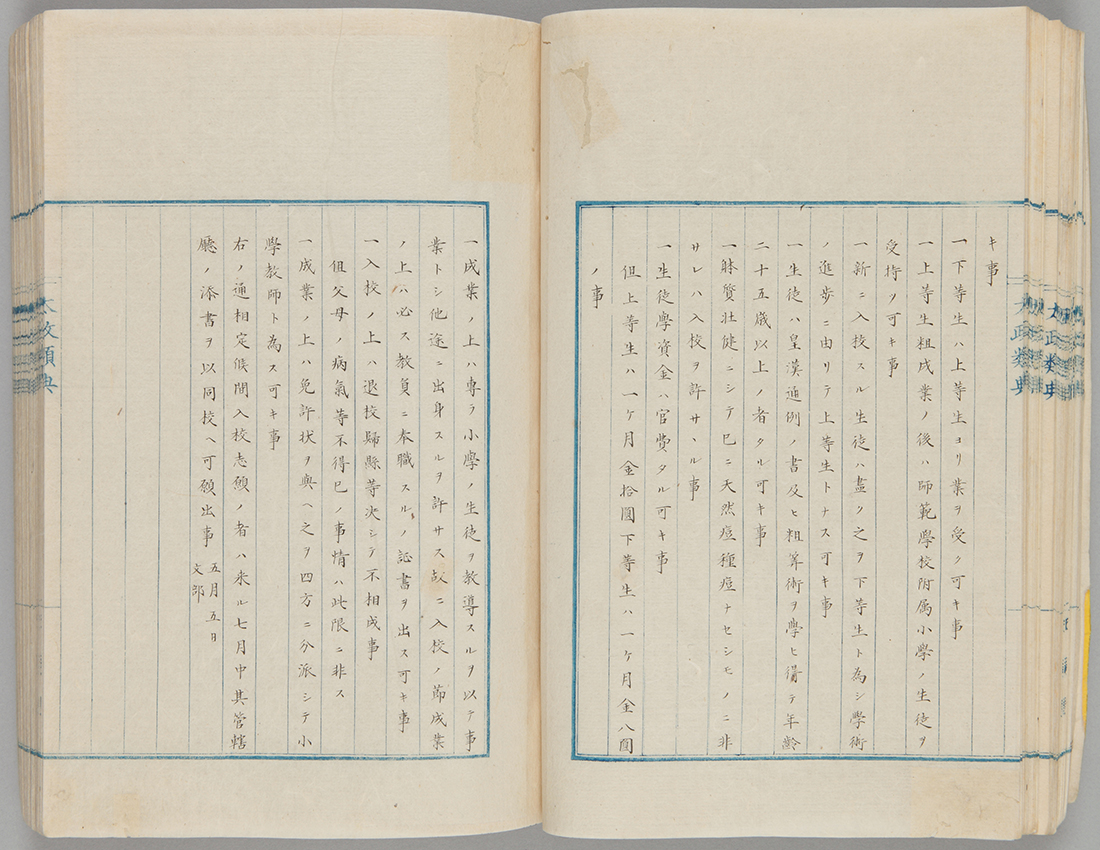 キ事
一下等生ハ上等生ヨリ業ヲ受ク可キ事
一上等生粗成業ノ後ハ師範學校附属小學ノ生徒ヲ
受持ツ可キ事
一新ニ入校スル生徒ハ盡ク之ヲ下等生ト為シ學術
ノ進歩ニ由リテ上等生トナス可キ事
一生徒ハ皇漢通例ノ書及ヒ粗算術ヲ學ヒ得テ年齢
二十五歳以上ノ者タル可キ事
一躰質壮健ニシテ已ニ天然痘種痘ナセシモノニ非
サレハ入校ヲ許サヽル事
一生徒學資金ハ官費タル可キ事
但上等生ハ一ケ月金拾圓下等生ハ一ケ月金八圓
ノ事
一成業ノ上ハ専ラ小學ノ生徒ヲ教導スルヲ以テ事
業トシ他途ニ出身スルヲ許サス故ニ入校ノ節成業
ノ上ハ必ス教員ニ奉職スルノ証書ヲ出ス可キ事
一入校ノ上ハ退校歸縣等決シテ不相成事
但父母ノ病氣等不得已ノ事情ハ此限ニ非ス
一成業ノ上ハ免許状ヲ與ヘ之ヲ四方ニ分派シテ小
學教師ト為ス可キ事
右ノ通相定候間入校志願ノ者ハ来ル七月中其管轄
廳ノ添書ヲ以同校ヘ可願出事 五月五日
文部
太政類典
太政類典
太政類典